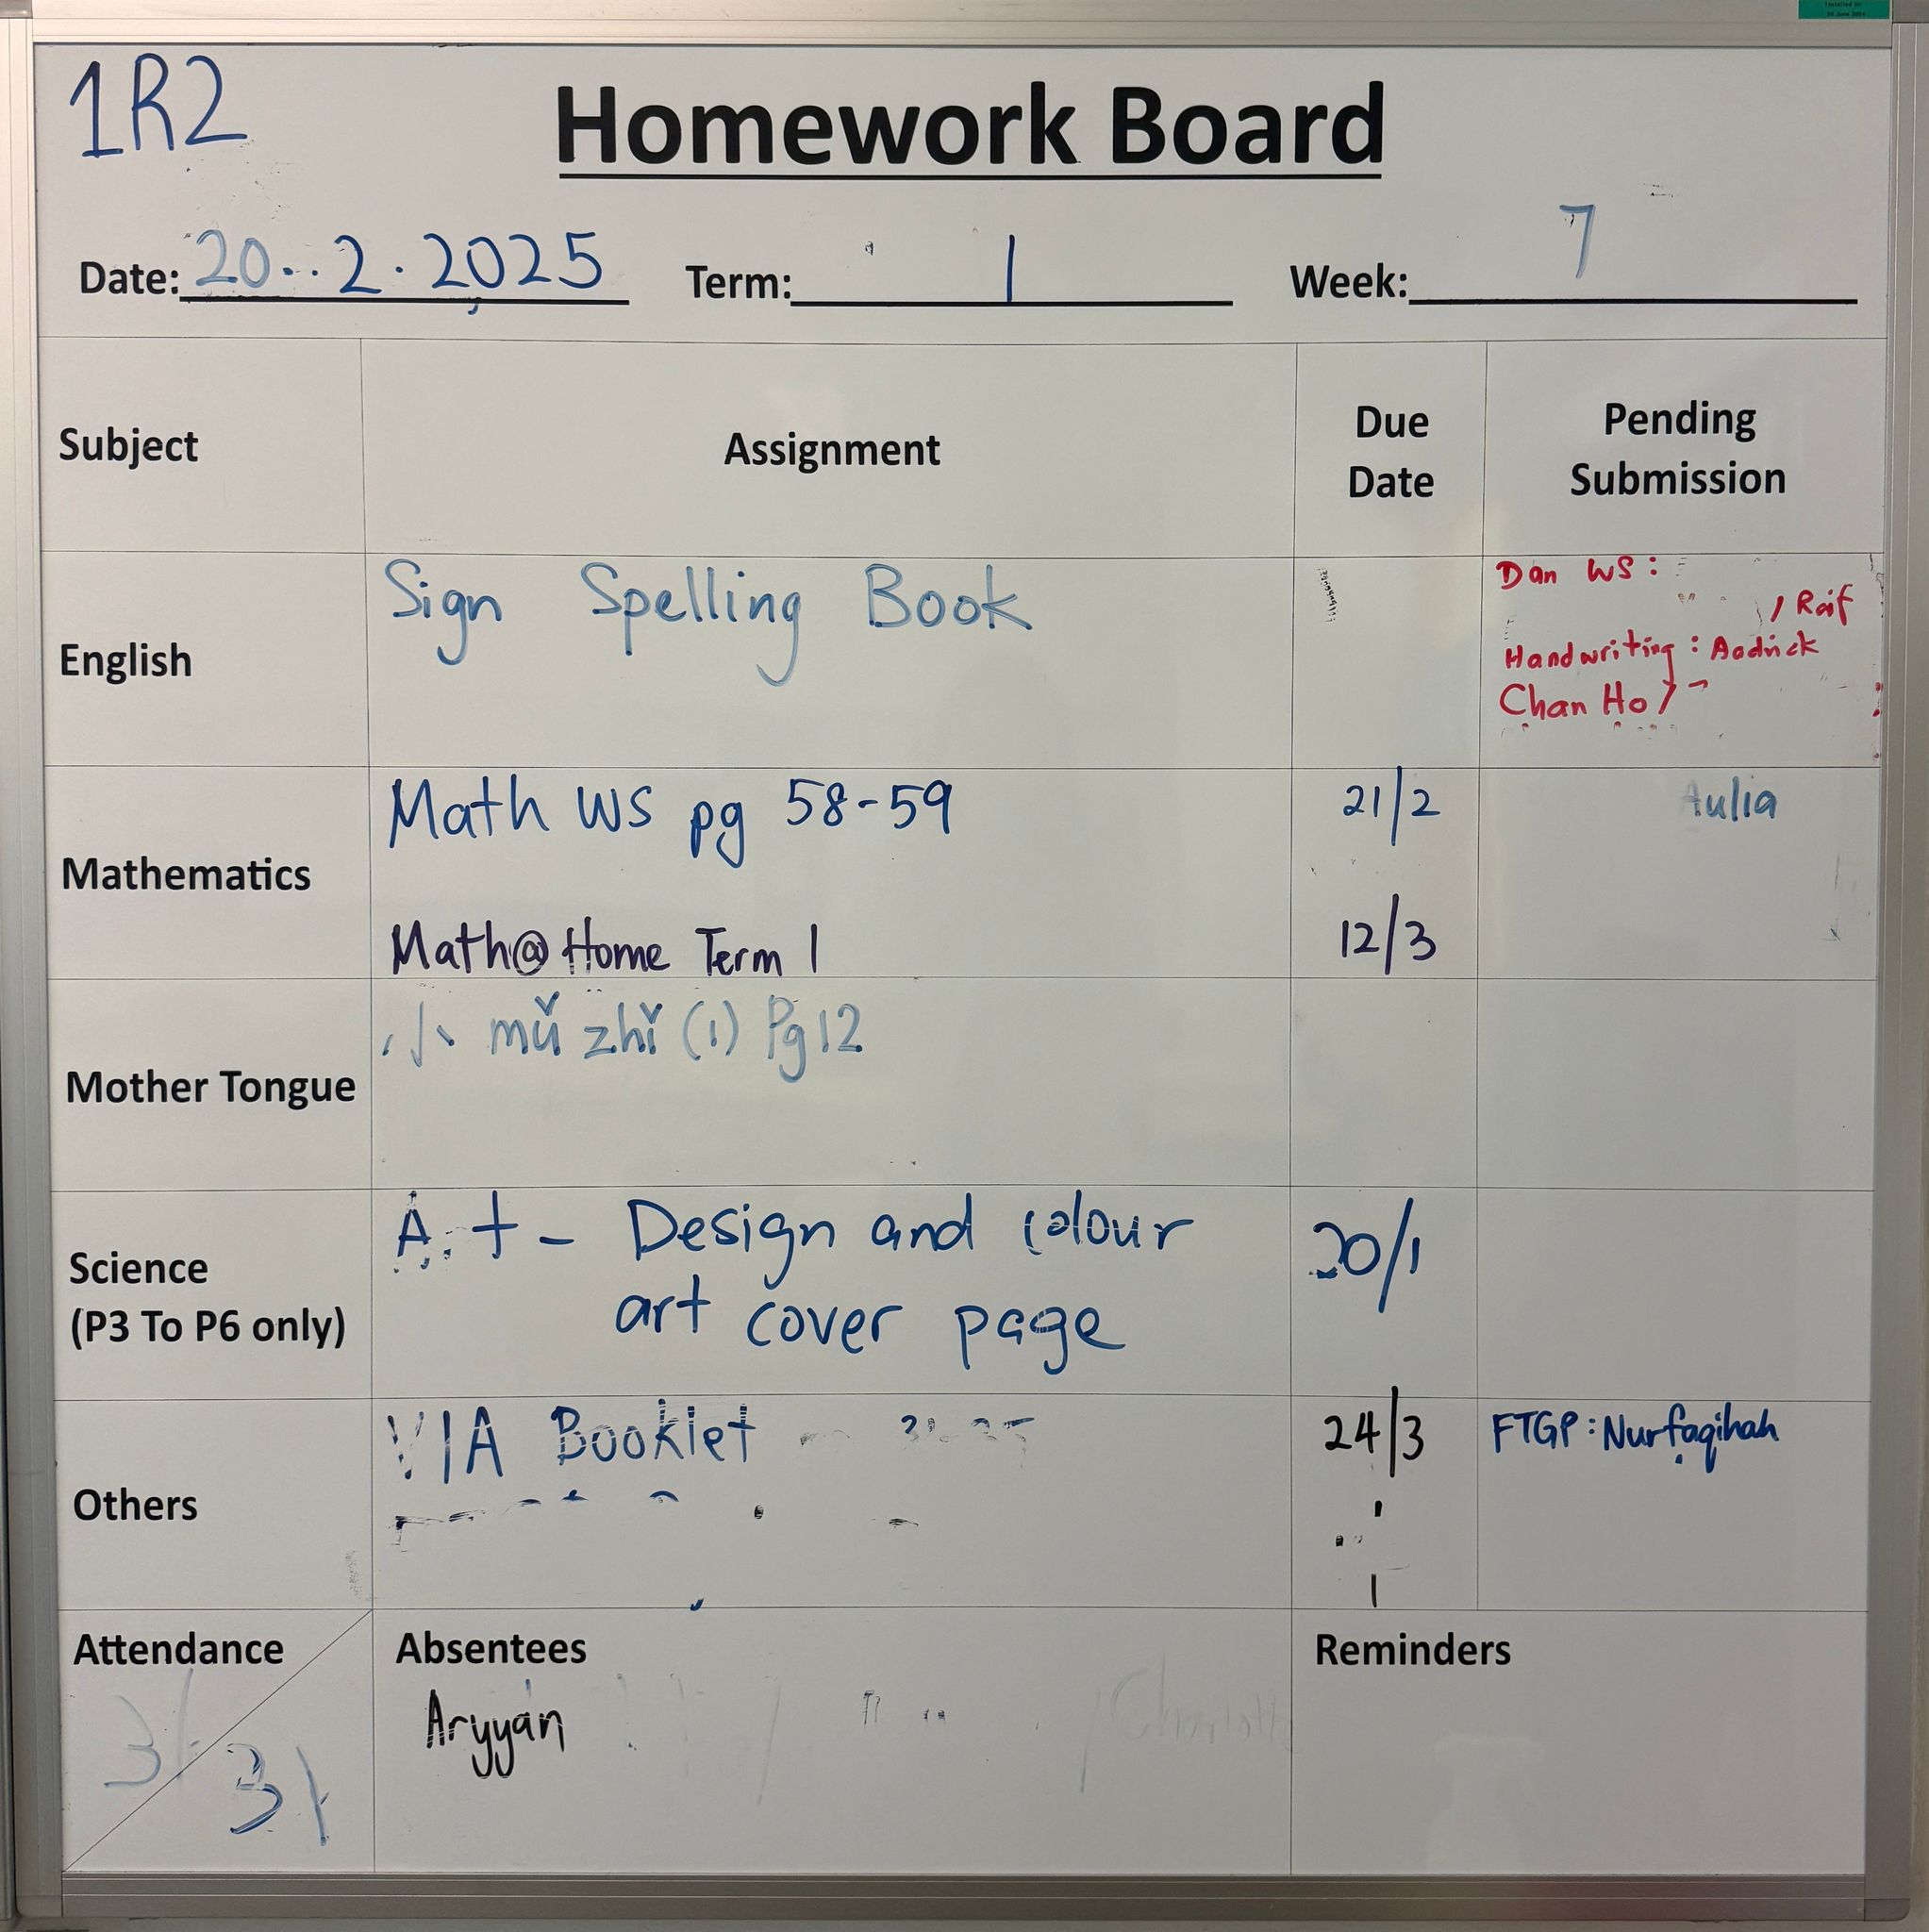 1R2
Homework Board
Date: 20..2.2025 Term: 1 Week: 7
Subject Assignment Due Date Pending Submission
English
Sign Spelling Book
Dan WS:
, Raif
Handwriting: Aodrick
Chan Ho /
Mathematics
Math WS pg 58-59 21/2 Aulia
Math@Home Term 1 12/3
Mother Tongue
小 mǔ zhǐ (1) Pg 12
Science
(P3 To P6 only)
Art - Design and colour
art cover page
20/1
Others
VIA Booklet 24/3 FTGP: Nurfaqihah
Attendance Absentees Reminders
31 31
Aryyan